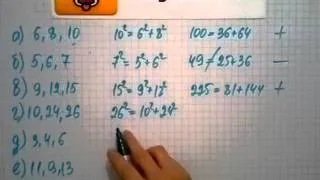 а) 6, 8, 10 10² = 6² + 8² 100 = 36 + 64 +
б) 5, 6, 7 7² = 5² + 6² 49 ≠ 25 + 36 −
в) 9, 12, 15 15² = 9² + 12² 225 = 81 + 144 +
г) 10, 24, 26 26² = 10² + 24²
д) 3, 4, 6
е) 11, 9, 13